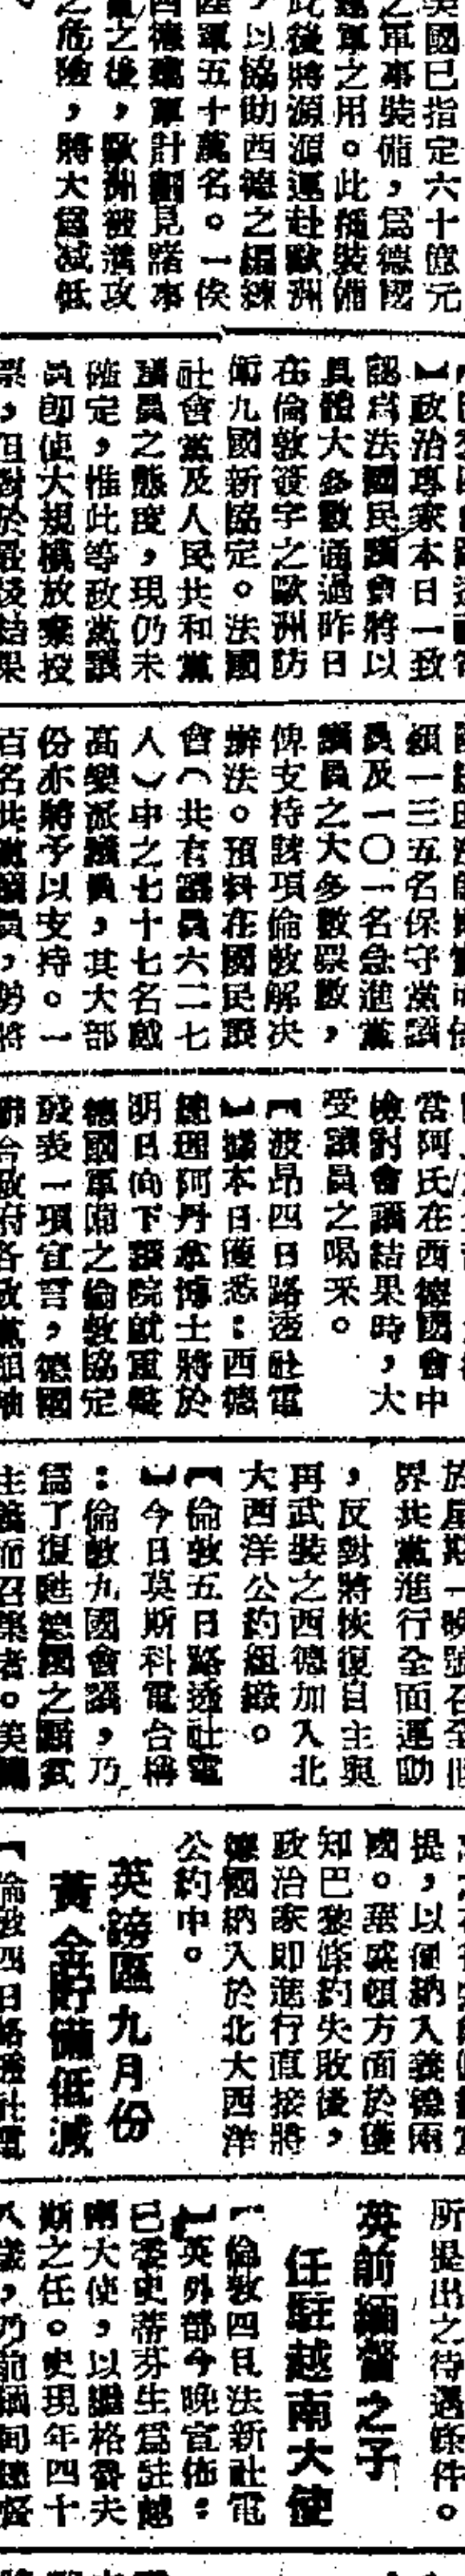 美國已指定六十億元
之軍事裝備，爲德國
建軍之用。此種裝備
此後將源源運赴歐洲
，以協助西德之編練
陸軍五十萬名。一俟
西德建軍計劃見諸事
實之後，歐洲被進攻
之危險，將大爲减低
】政治專家本日一致
認爲法國民議會將以
具體大多數通過昨日
在倫敦簽字之歐洲防
衛九國新協定。法國
社會黨及人民共和黨
議員之態度，現仍未
確定，惟此等政黨議
員卽使大規模放棄投
票，但對於最後結果
領一三五名保守黨議
員及一〇一名急進黨
議員之大多數票數，
俾支持該項倫敦解决
辦法。預料在國民議
會（共有議員六二七
人）中之七十七名戴
高樂派議員，其大部
份亦將予以支持。一
百名共黨議員，勢將
當阿氏在西德國會中
檢討會議結果時，大
受議員之喝釆。
【波昂四日路透社電
】據本日獲悉：西德
總理阿丹拿博士將於
明日向下議院就重整
德國軍備之倫敦協定
發表一項宣言，德國
聯合政府各政黨領袖
於星期一晚號召全世
界共黨進行全面運動
，反對將恢復自主與
再武裝之西德加入北
大西洋公約組織。
【倫敦五日路透社電
】今日莫斯科電台稱
：倫敦九國會議，乃
爲了復甦德國之黷武
主義而召集者。美國
提，以便納入義德兩
國。華盛頓方面於獲
知巴黎條約失敗後，
政治家卽進行直接將
德國納入於北大西洋
公約中。
英鎊區九月份
黃金貯備低減
【倫敦四日路透社電
所提出之待遇條件。
英前緬督之子
任駐越南大使
【倫敦四日法新社電
】英外部今晚宣佈：
已委史蒂芬生爲駐越
南大使，以繼格魯夫
斯之任。史現年四十
八歲，乃前緬甸總督